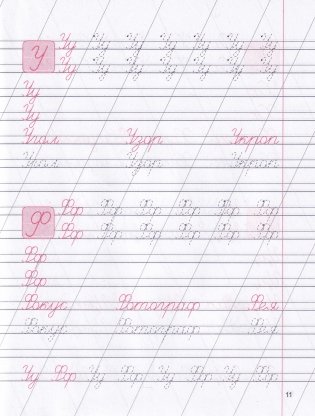 У Уу Уу Уу Уу Уу Уу Уу
Уу Уу Уу Уу Уу Уу Уу
Уу
Уу
Угол Узор Укроп
Угол Узор Укроп
Ф Фф Фф Фф Фф Фф Фф
Фф Фф Фф Фф Фф Фф
Фф
Фф
Фокус Фотограф Фея
Фокус Фотограф Фея
Уу Фф Уу Фф Уу Фф Уу Фф
11